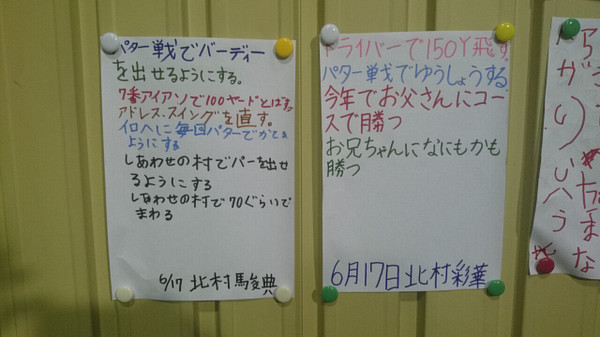 パター戦でバーディー
を出せるようにする。
7番アイアンで100ヤードとばす。
アドレス、スイングを直す。
イロハに毎回パターでかてる
ようにする
しあわせの村でパーを出せ
るようにする
しあわせの村で70ぐらいで
まわる
6/17 北村駿典
ドライバーで150Y飛す。
パター戦でゆうしょうする
今年でお父さんにコー
スで勝つ
お兄ちゃんになにもかも
勝つ
6月17日北村彩華